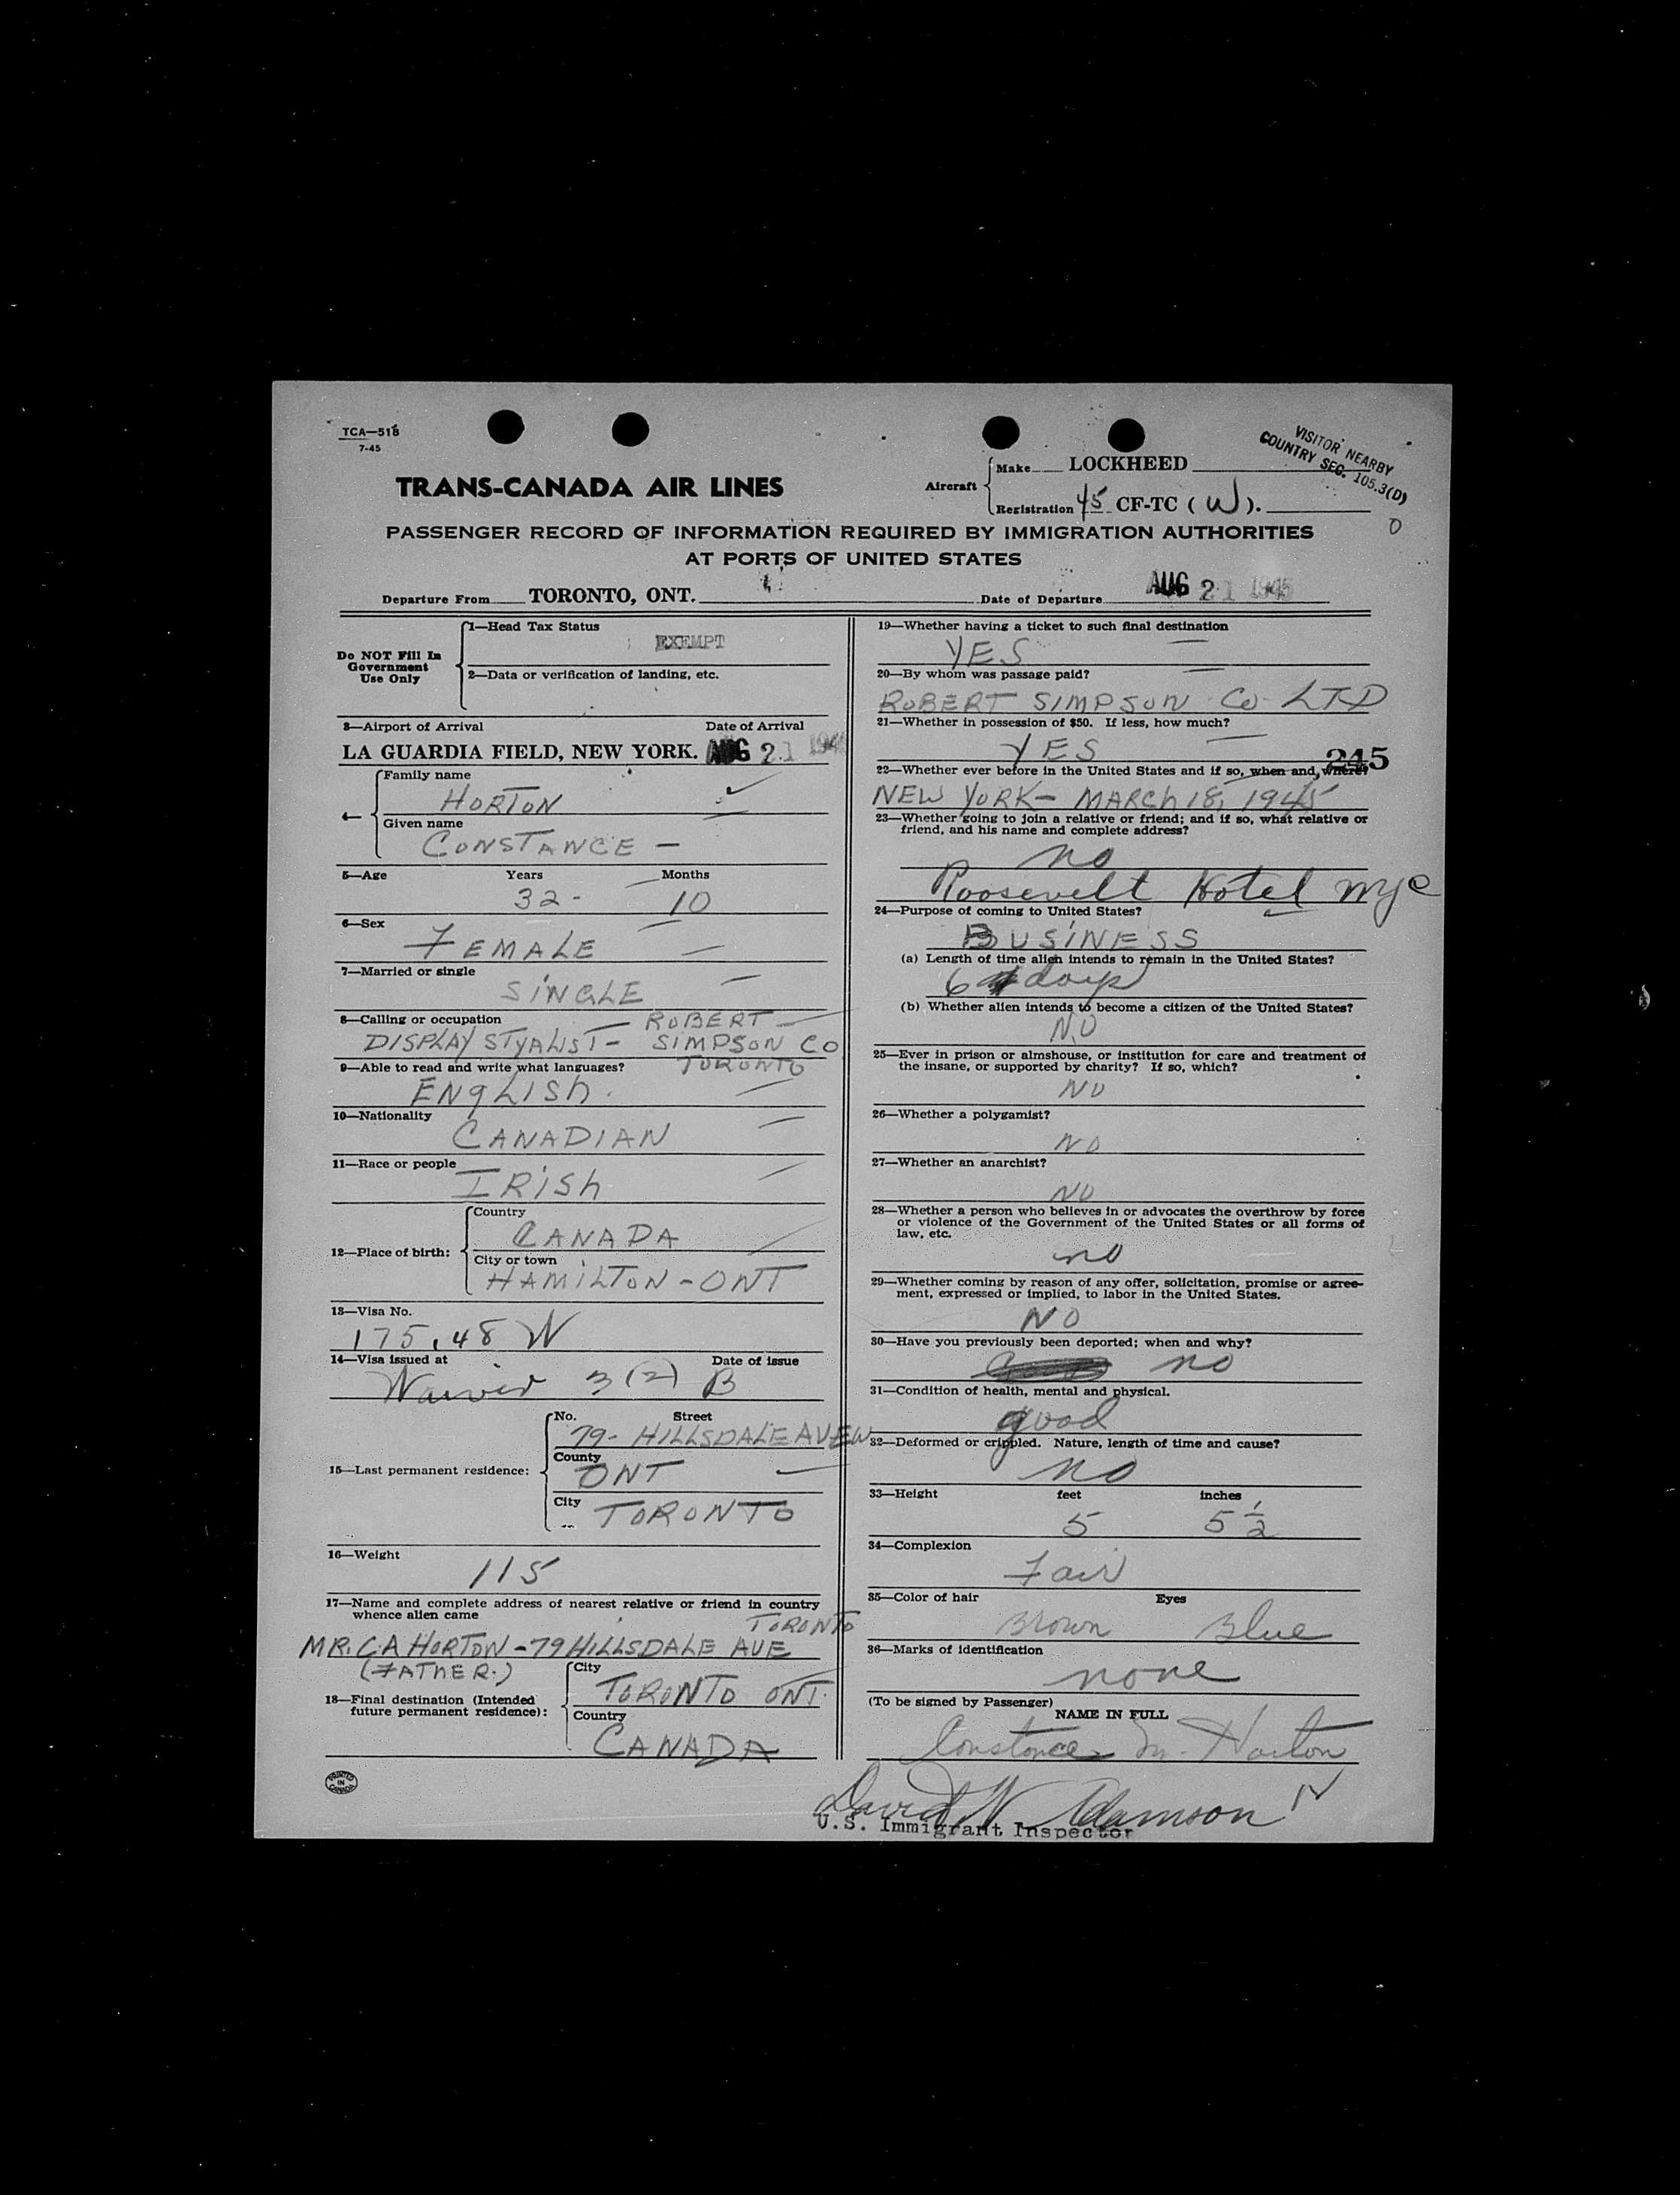 TCA—518
7-45
TRANS-CANADA AIR LINES
Aircraft
Make LOCKHEED
Registration 45 CF-TC (W).
VISITOR NEARBY
COUNTRY SEC. 105.3(D)
0
PASSENGER RECORD OF INFORMATION REQUIRED BY IMMIGRATION AUTHORITIES
AT PORTS OF UNITED STATES
Departure From TORONTO, ONT.
Date of Departure AUG 21 1945
Do NOT Fill In
Government
Use Only
1—Head Tax Status
EXEMPT
2—Data or verification of landing, etc.
3—Airport of Arrival Date of Arrival
LA GUARDIA FIELD, NEW YORK. AUG 21 194
4
Family name
HORTON
Given name
CONSTANCE —
5—Age Years Months
32- 10
6—Sex
FEMALE
7—Married or single
SINGLE
8—Calling or occupation ROBERT
DISPLAY STYALIST — SIMPSON CO
9—Able to read and write what languages? TORONTO
ENGLISH.
10—Nationality
CANADIAN
11—Race or people
IRISH
12—Place of birth:
Country
CANADA
City or town
HAMILTON - ONT
13—Visa No.
175.48 W
14—Visa issued at Date of issue
Waiver 3(2) B
15—Last permanent residence:
No. Street
79- HILLSDALE AVE W
County
ONT
City
TORONTO
16—Weight
115
17—Name and complete address of nearest relative or friend in country
whence alien came
TORONTO
MR. C A HORTON - 79 HILLSDALE AVE
(FATHER.)
18—Final destination (Intended
future permanent residence):
City
TORONTO ONT.
Country
CANADA
PRINTED
IN
CANADA
19—Whether having a ticket to such final destination
YES
20—By whom was passage paid?
ROBERT SIMPSON Co LTD
21—Whether in possession of $50. If less, how much?
YES
245
22—Whether ever before in the United States and if so, when and where?
NEW YORK — MARCH 18, 1945
23—Whether going to join a relative or friend; and if so, what relative or
friend, and his name and complete address?
no
Roosevelt Hotel nyc
24—Purpose of coming to United States?
BUSINESS
(a) Length of time alien intends to remain in the United States?
6 days
(b) Whether alien intends to become a citizen of the United States?
NO
25—Ever in prison or almshouse, or institution for care and treatment of
the insane, or supported by charity? If so, which?
NO
26—Whether a polygamist?
NO
27—Whether an anarchist?
NO
28—Whether a person who believes in or advocates the overthrow by force
or violence of the Government of the United States or all forms of
law, etc.
no
29—Whether coming by reason of any offer, solicitation, promise or agree-
ment, expressed or implied, to labor in the United States.
NO
30—Have you previously been deported; when and why?
no
31—Condition of health, mental and physical.
good
32—Deformed or crippled. Nature, length of time and cause?
no
33—Height feet inches
5 5 1/2
34—Complexion
Fair
35—Color of hair Eyes
Brown Blue
36—Marks of identification
none
(To be signed by Passenger)
NAME IN FULL
Constance M. Horton
David W. Adamson
U.S. Immigrant Inspector